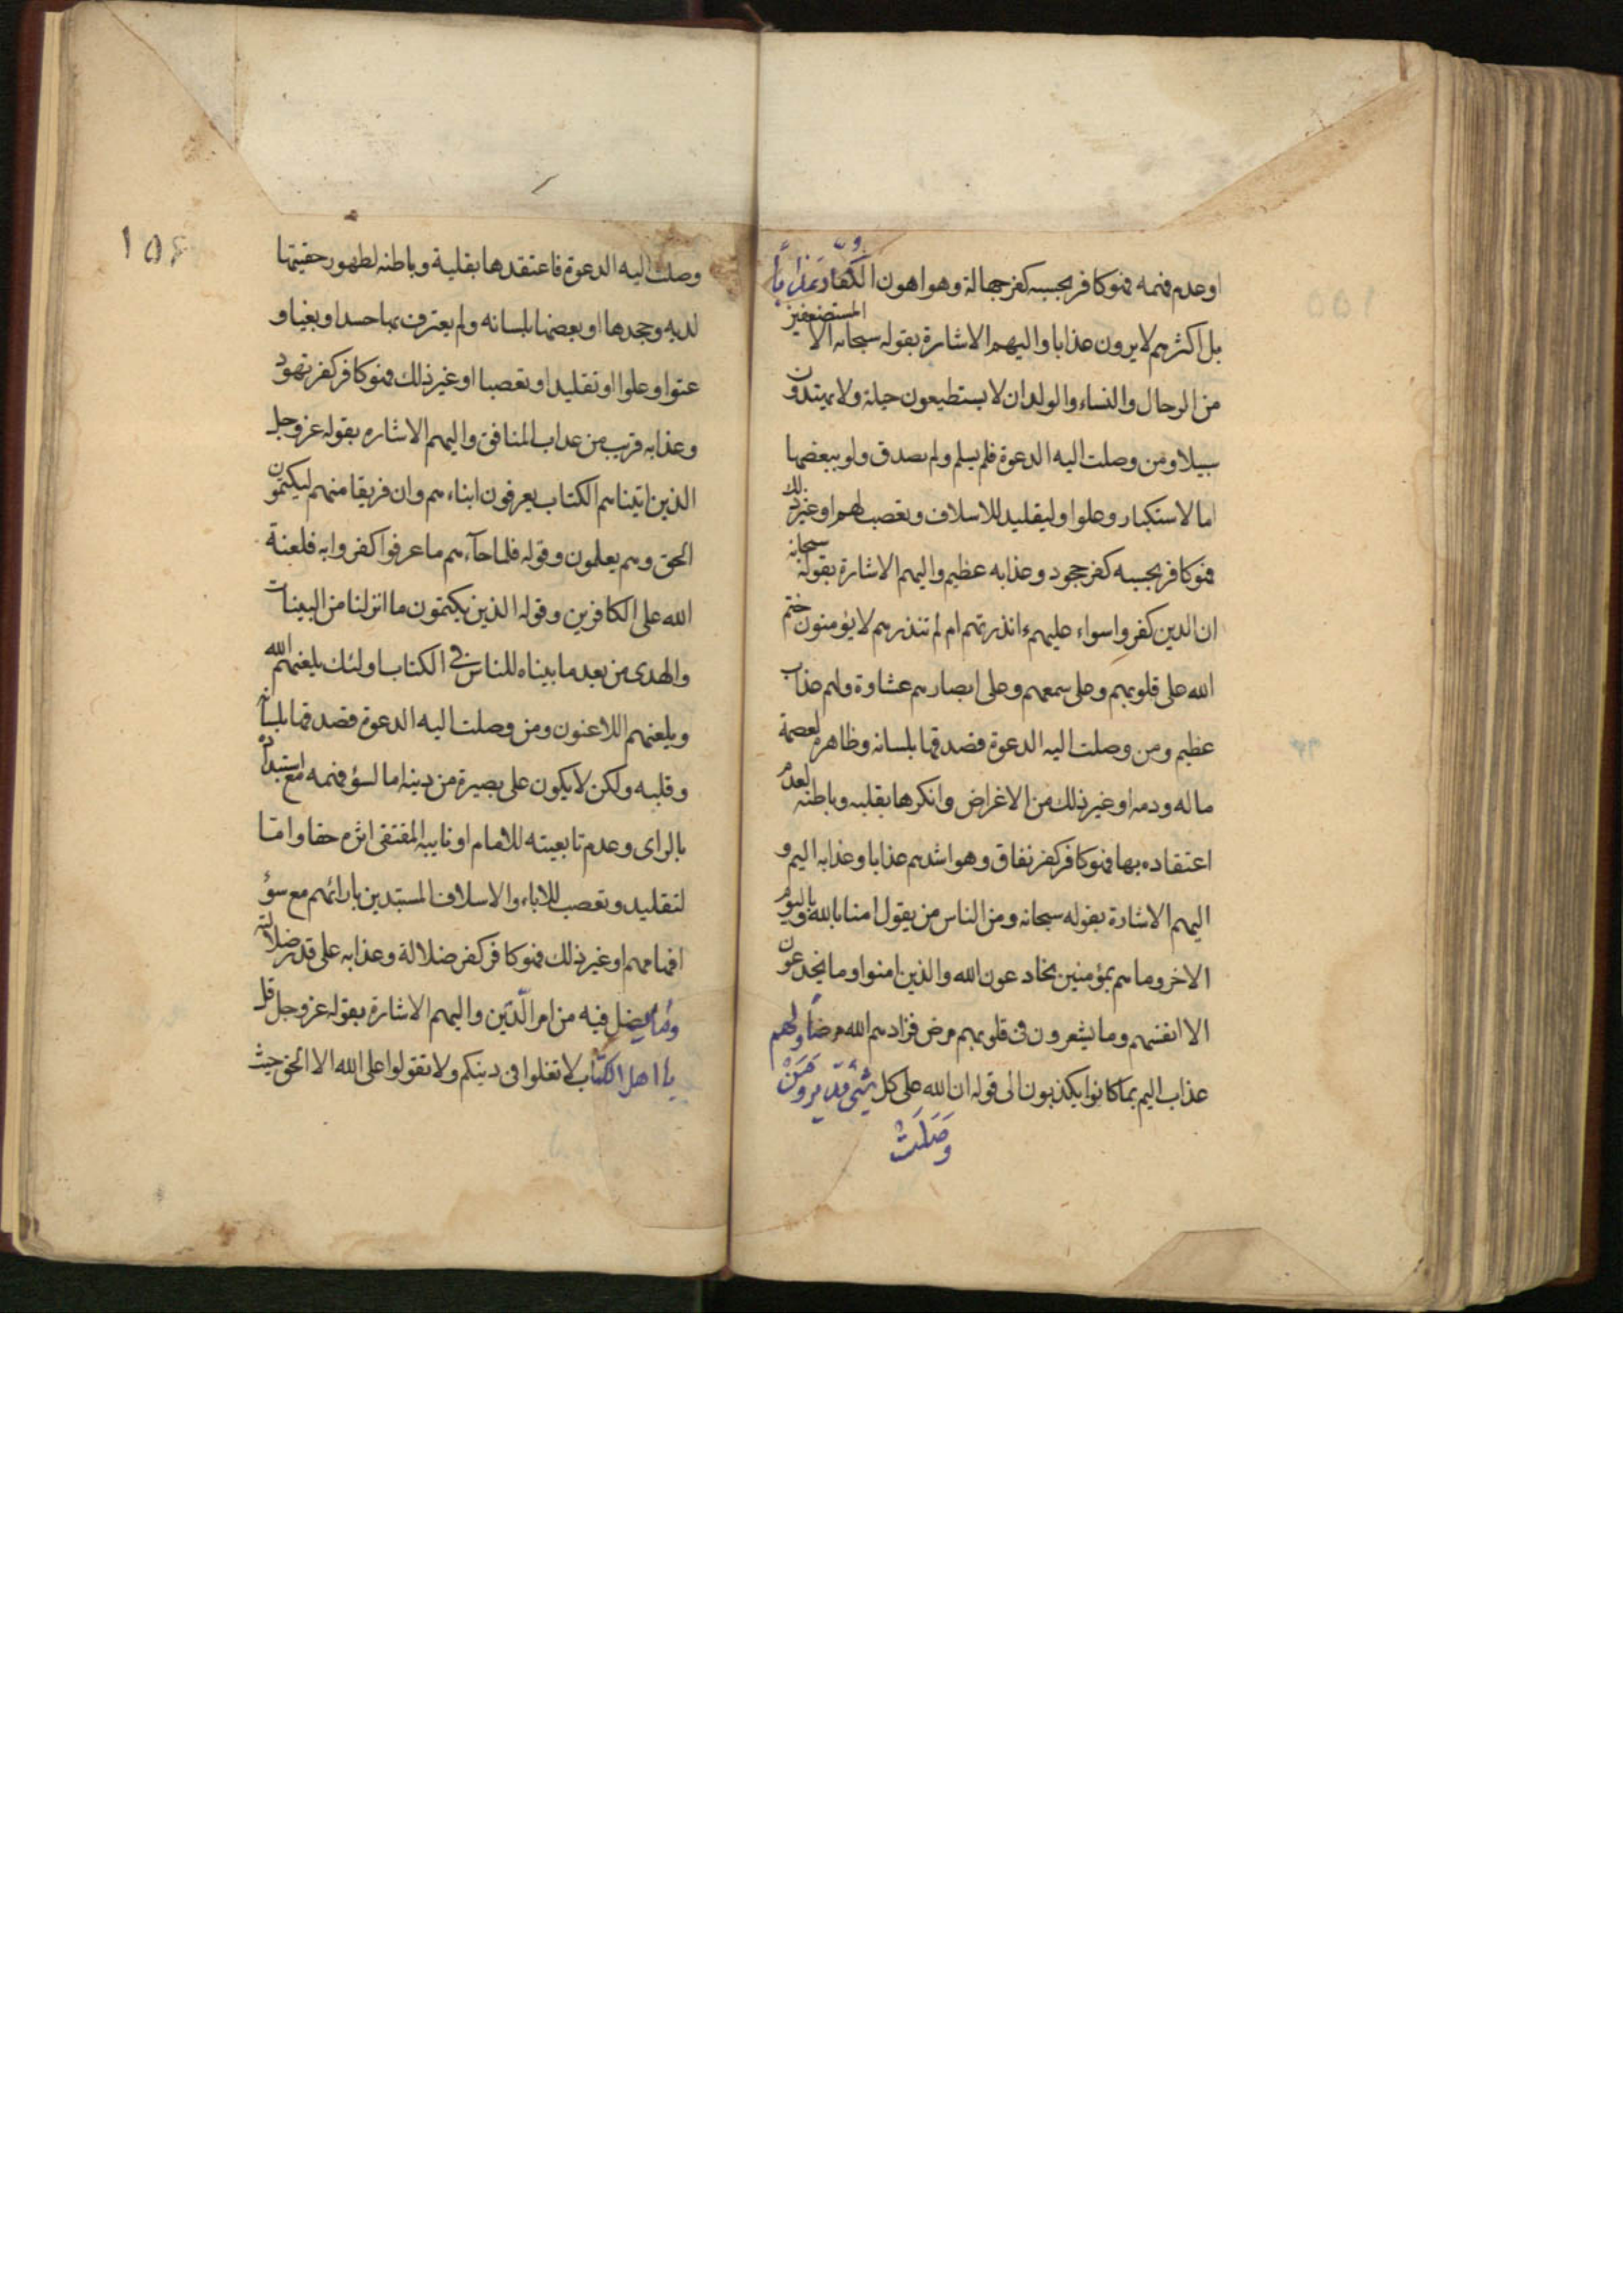 او عدم فهمه فهو كافر بحسبه كفر جهالة وهو اهون الكفار عذابا
بل اكثرهم لا يرون عذابا واليهم الاشارة بقوله سبحانه الا المستضعفين
من الرجال والنساء والولدان لا يستطيعون حيلة ولا يهتدون
سبيلا ومن وصلت اليه الدعوة فلم يسلم ولم يصدق ولو ببعضها
اما لاستكبار وعلوا وليقليد للاسلاف وتعصب لهم او غير ذلك
فهو كافر بحسبه كفر جحود وعذابه عظيم واليهم الاشارة بقوله سبحانه
ان الذين كفروا سواء عليهم ءانذرتهم ام لم تنذرهم لا يؤمنون ختم
الله على قلوبهم وعلى سمعهم وعلى ابصارهم غشاوة ولهم عذاب
عظيم ومن وصلت اليه الدعوة فصدقها بلسانه وظاهره لعصمة
ماله ودمه او غير ذلك من الاغراض وانكرها بقلبه وباطنه لعدم
اعتقاده بها فهو كافر كفر نفاق وهو اشدهم عذابا وعذابه اليم و
اليهم الاشارة بقوله سبحانه ومن الناس من يقول امنا بالله وباليوم
الاخر وما هم بمؤمنين يخادعون الله والذين امنوا وما يخدعون
الا انفسهم وما يشعرون فى قلوبهم مرض فزادهم الله مرضا ولهم
عذاب اليم بما كانوا يكذبون الى قوله ان الله على كل شئ قدير ومن
وصلت
١٥٦
وصلت اليه الدعوة فاعتقدها بقلبه وباطنه لظهور حقيتها
لديه وجحدها او بعضها بلسانه ولم يعترف بها حسدا وبغيا و
عتوا وعلوا او تقليدا وتعصبا او غير ذلك فهو كافر كفر تهود
وعذابه قريب من عذاب المنافق واليهم الاشاره بقوله عز وجل
الذين اتيناهم الكتاب يعرفون ابناءهم وان فريقا منهم ليكتمون
الحق وهم يعلمون وقوله فلما جآءهم ما عرفوا كفروا به فلعنة
الله على الكافرين وقوله الذين يكتمون ما انزلنا من البينات
والهدى من بعد ما بيناه للناس فى الكتاب اولئك يلعنهم الله
ويلعنهم اللاعنون ومن وصلت اليه الدعوة فصدقها بلسانه
وقلبه ولكن لا يكون على بصيرة من دينه اما لسؤ فهمه مع استبداده
بالراى وعدم تابعيته للامام او نايبه المقتفى اثره حقا واما
لتقليد وتعصب للاباء والاسلاف المستبدين بارائهم مع سوء
افهامهم او غير ذلك فهو كافر كفر ضلالة وعذابه على قدر ضلالته
وقدر ما يضل فيه من امر الدّين واليهم الاشارة بقوله عز وجل قل
يا اهل الكتاب لا تغلوا فى دينكم ولا تقولوا على الله الا الحق حيث